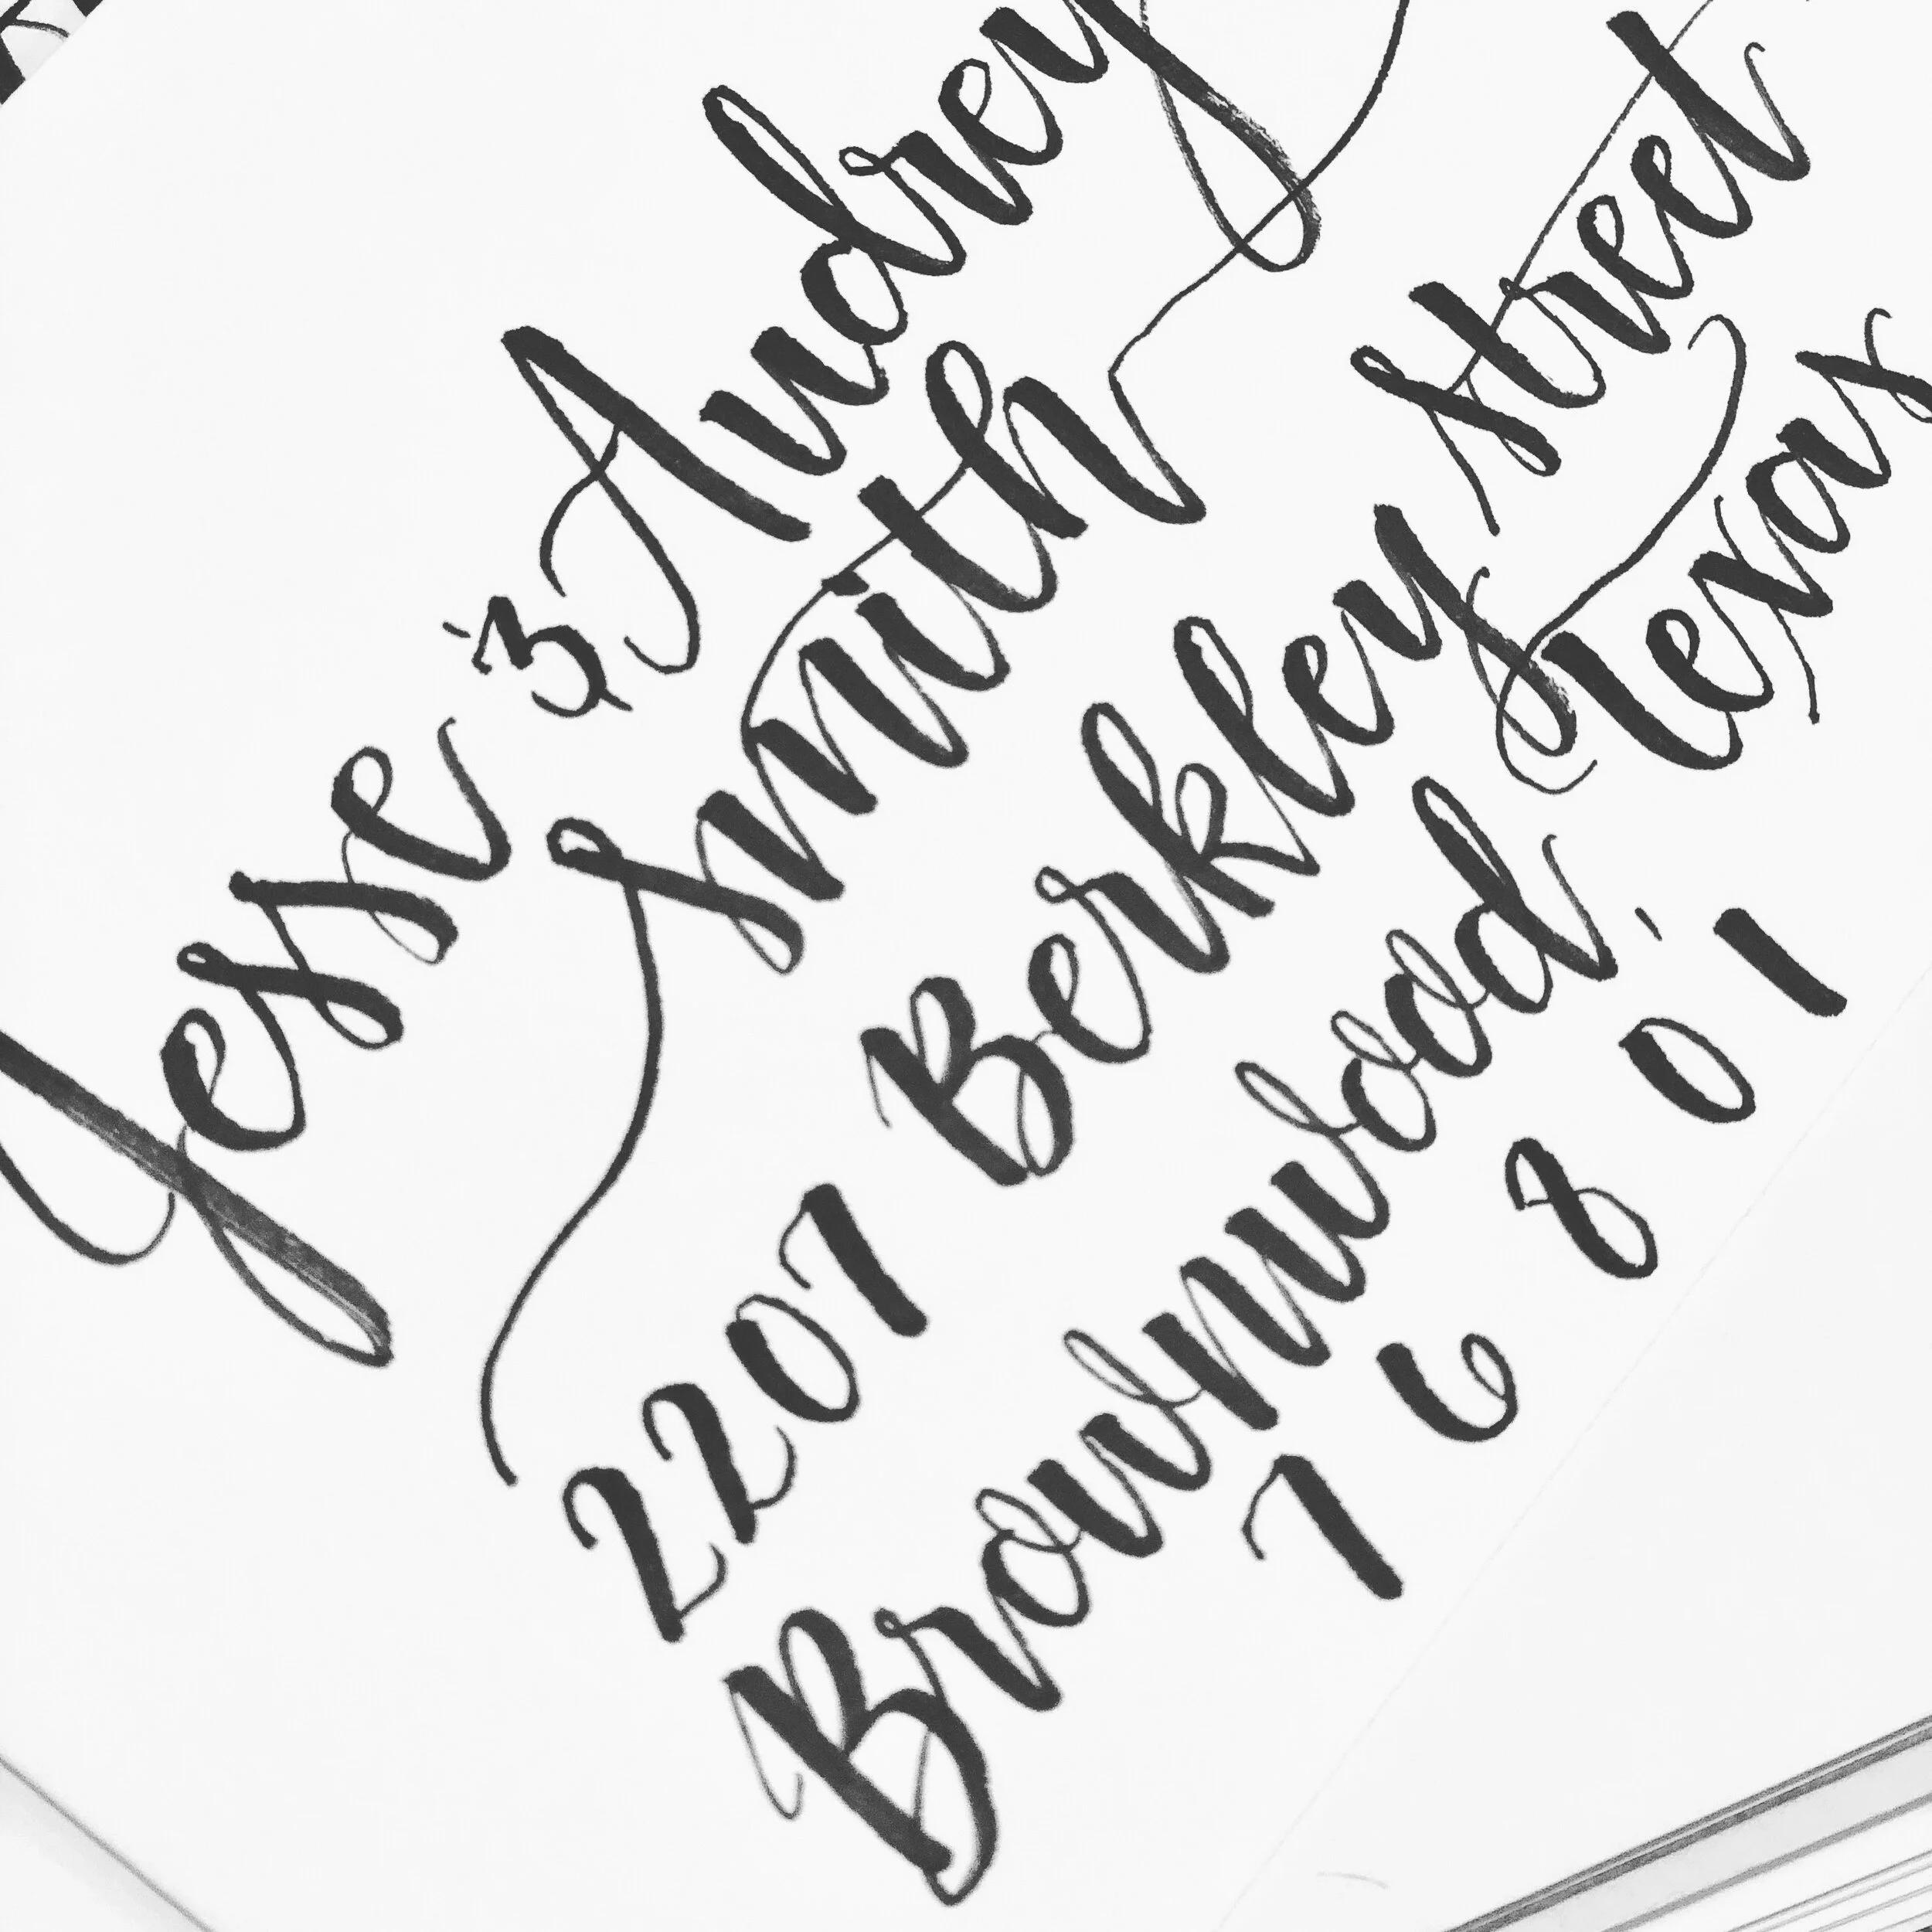 Jesse & Audrey
Smith
2207 Berkley Street
Brownwood, Texas
76801